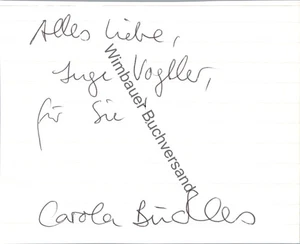 Alles Liebe,
Inge Vogtler,
für Sie
Carola
Wimbauer Buchversand